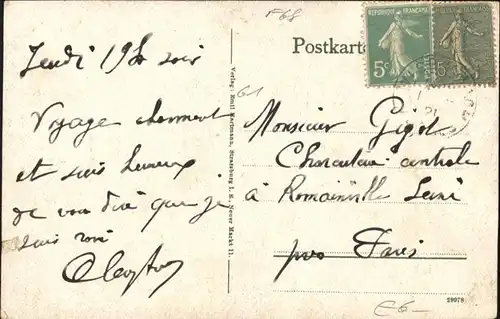 Jeudi 19h soir
Voyage charmant
et suis heureux
de vous dire que je
suis
Postkarte
RÉPUBLIQUE FRANÇAISE
5c
Verlag: Emil Hartmann, Strassburg I. E., Neuer Markt 11.
61
Monsieur Gigot
Charcuterie centrale
à Romainville Seine
près Paris
29078